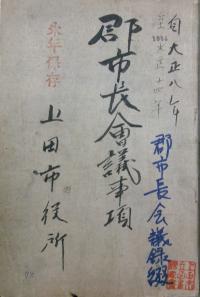 自大正八年
至大正十四年
郡市長会議録綴
郡市長會議事項
永年保存
上田市役所